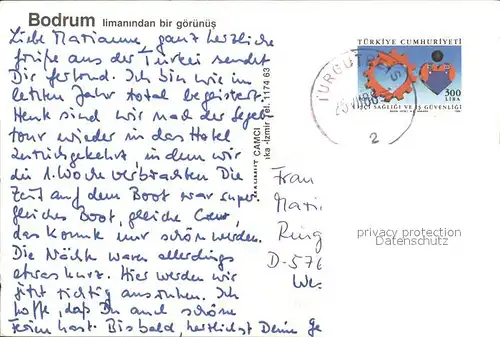 Bodrum limanından bir görünüş
Liebe Marianne, ganz herzliche
Grüße aus der Türkei sendet
Dir Gerlond. Ich bin wie im
letzten Jahr total begeistert.
Heute sind wir nach der Segel-
tour wieder in das Hotel
zurückgekehrt, in dem wir
die 1. Woche verbrachten. Die
Zeit auf dem Boot war super.
gleiches Boot, gleiche Crew,
das konnte nur schön werden.
Die Nächte waren allerdings
etwas kurz. Hier werden wir
jetzt richtig ausruhen. Ich
hoffe, daß Du auch schöne
Ferien hast. Bis bald, herzlichst Deine Ge
CAMCI
ska -İzmir Tel. 1174 63
TÜRKİYE CUMHURİYETİ
300
LİRA
İŞÇİ SAĞLIĞI VE İŞ GÜVENLİĞİ
TURGUTREİS
2
Frau
Mari
Ring
D-576
Wes
privacy protection
Datenschutz